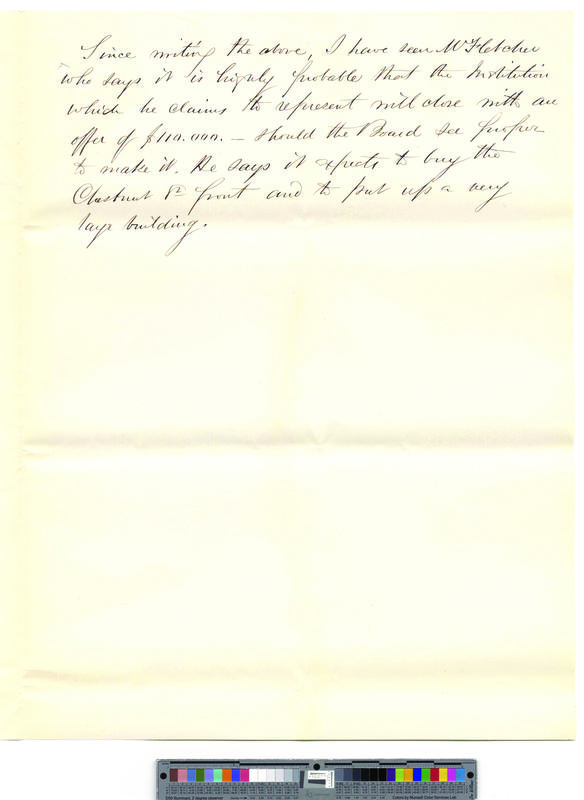 Since writing the above, I have seen Mr Fletcher
who says it is highly probable that the Institution
which he claims to represent will close with an
offer of $110.000. – should the Board see proper
to make it. He says it expects to buy the
Chestnut St front and to put up a very
large building.